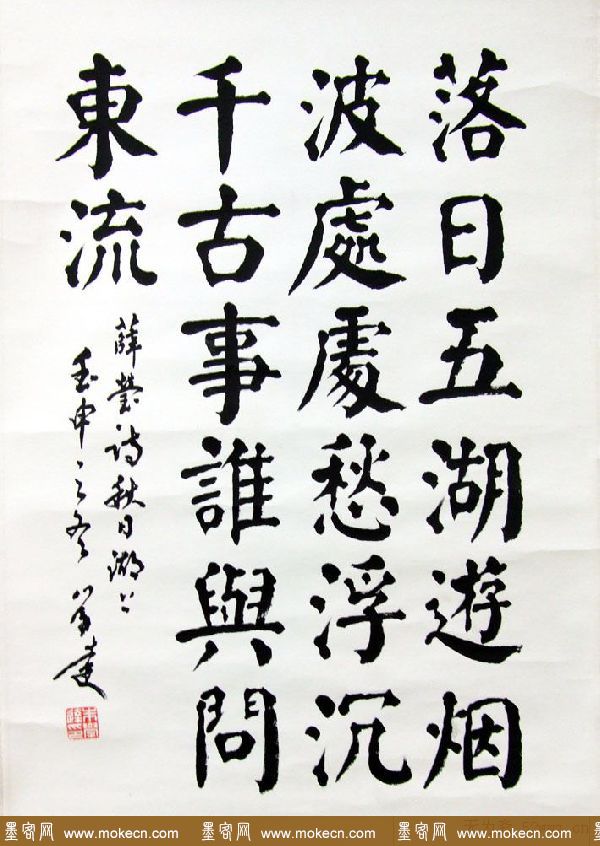 落日五湖遊烟
波處處愁浮沉
千古事誰與問
東流
薛瑩诗秋日湖上
壬申之冬
墨客网 www.mokecn.com 墨客网 www.mokecn.com 墨客网 www.mokecn.com